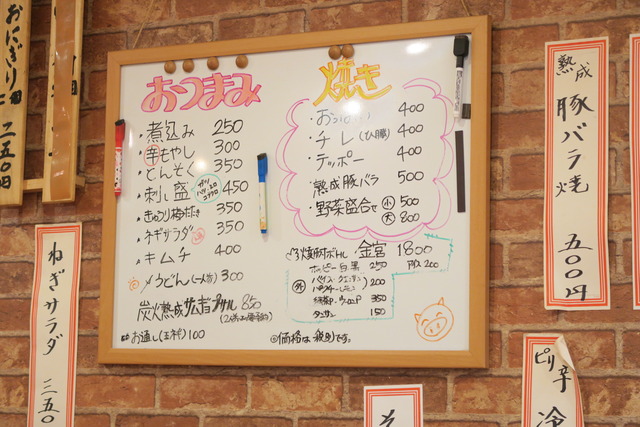 おにぎり
二五〇円
おつまみ
・煮込み 250
・辛もやし 300
・とんそく 350
・刺し盛 450
・きゅうり梅たたき 350
・ネギサラダ 350
・キムチ 400
〆うどん(一人前) 300
炭火熟成サムギョプサル 850
お通し(玉ネギ) 100
焼き
400
・チレ(ひ臓) 400
・テッポー 400
・熟成豚バラ 500
・野菜盛合せ 小 500
大 800
金宮 1800
ホッピー白黒 250
200
外
200
350
150
◎価格は税別です。
ねぎサラダ 三五〇
熟成豚バラ焼 五〇〇円
ピリ辛
そ